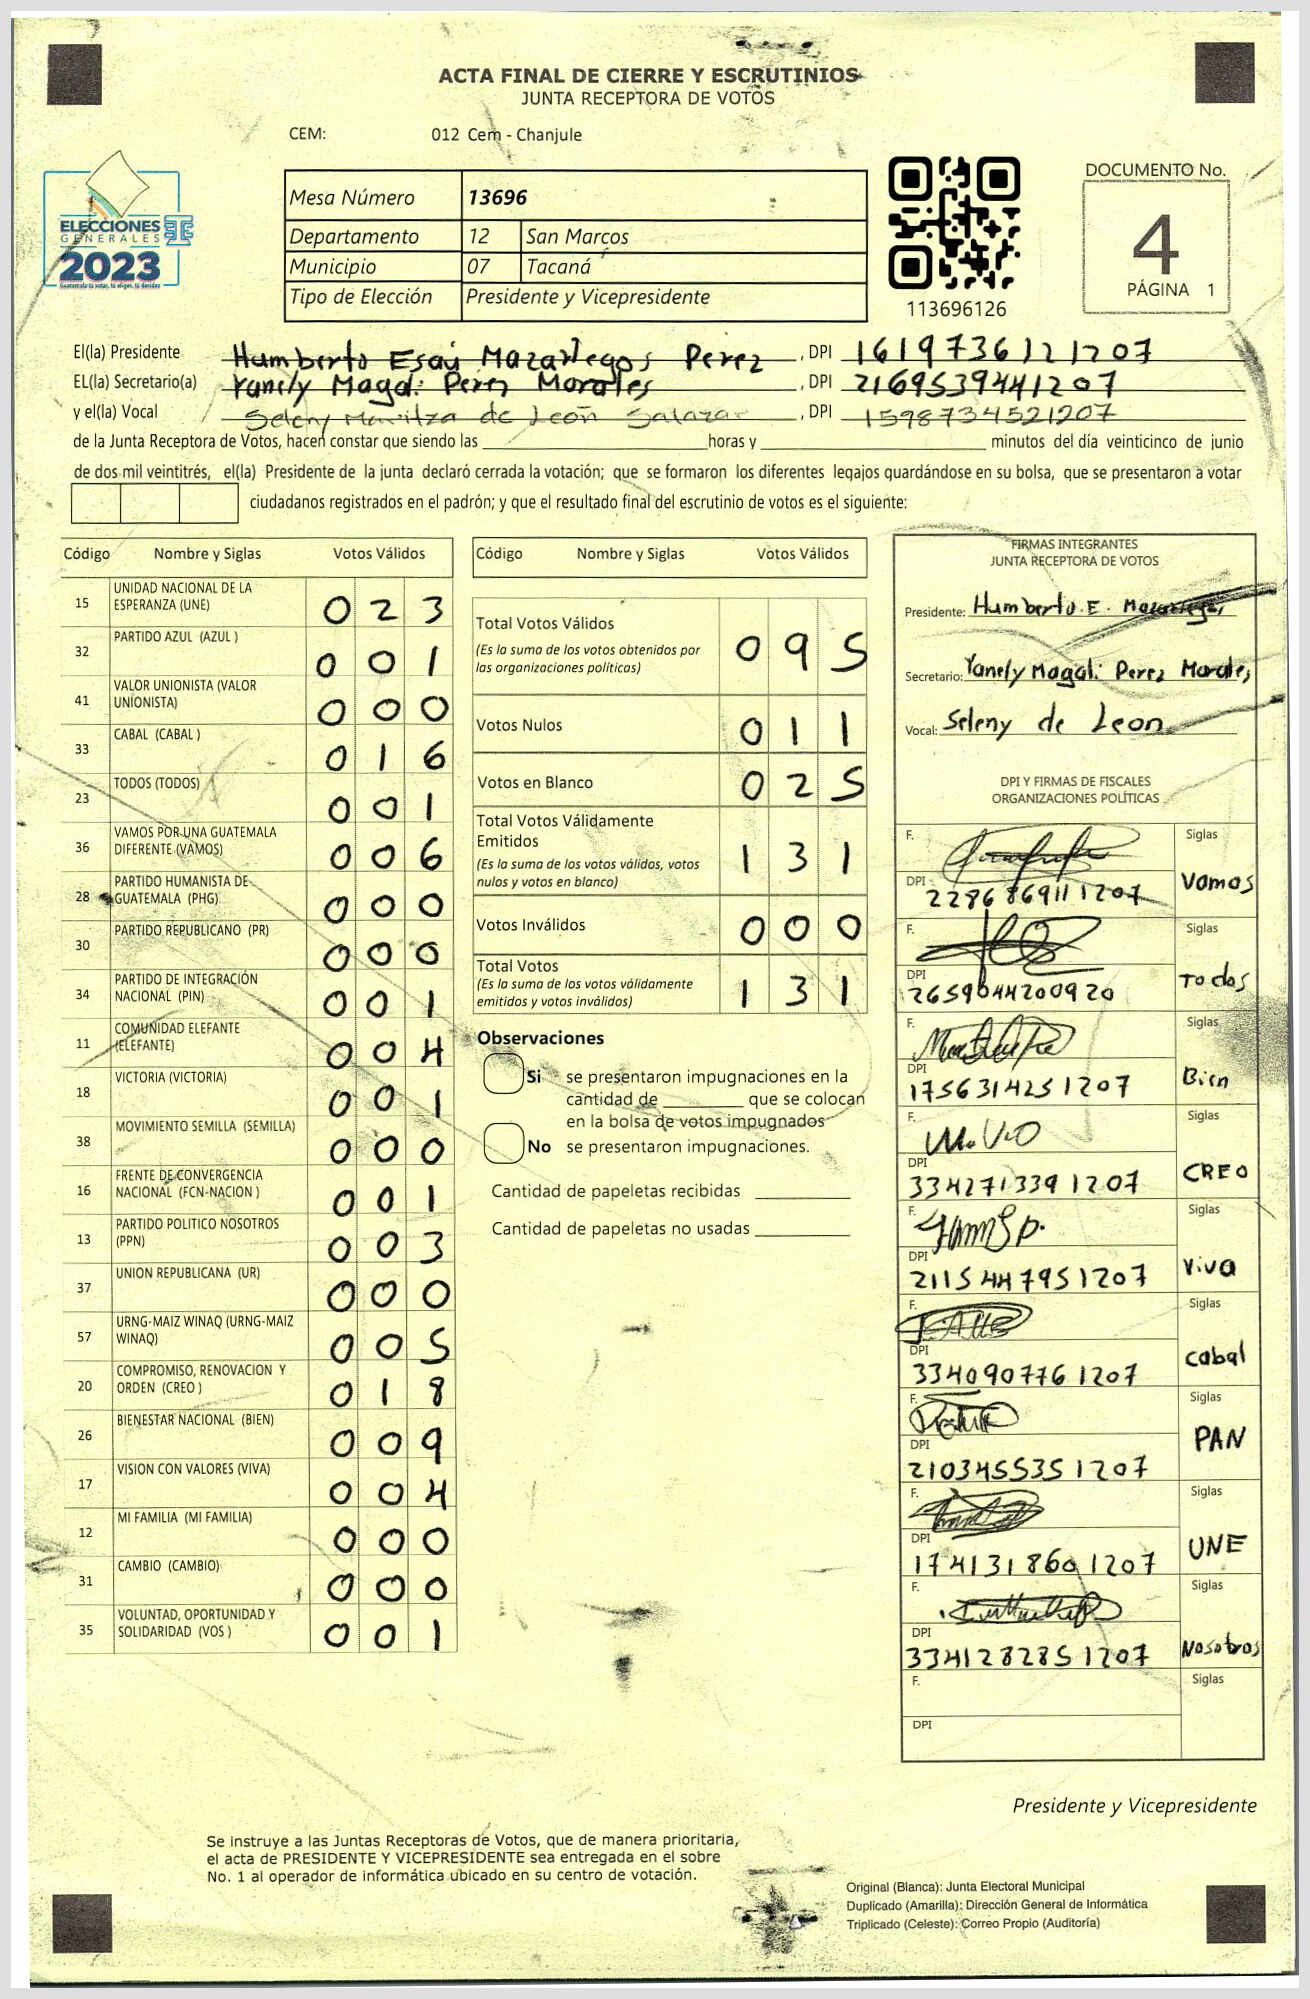 ACTA FINAL DE CIERRE Y ESCRUTINIOS
JUNTA RECEPTORA DE VOTOS
CEM: 012 Cem - Chanjule
ELECCIONES
GENERALES
2023
Guatemala tú votas, tú eliges, tú decides
Mesa Número 13696
Departamento 12 San Marcos
Municipio 07 Tacaná
Tipo de Elección Presidente y Vicepresidente
113696126
DOCUMENTO No.
4
PÁGINA 1
El(la) Presidente Humberto Esaú Mazariegos Perez, DPI 1619736121207
EL(la) Secretario(a) Yanely Magali Perez Morales, DPI 2169539441207
y el(la) Vocal Seleny Maritza de León Salazar, DPI 1598734521207
de la Junta Receptora de Votos, hacen constar que siendo las ____ horas y ____ minutos del día veinticinco de junio
de dos mil veintitrés, el(la) Presidente de la junta declaró cerrada la votación; que se formaron los diferentes legajos guardándose en su bolsa, que se presentaron a votar
ciudadanos registrados en el padrón; y que el resultado final del escrutinio de votos es el siguiente:
Código Nombre y Siglas Votos Válidos
15 UNIDAD NACIONAL DE LA ESPERANZA (UNE) 023
32 PARTIDO AZUL (AZUL ) 001
41 VALOR UNIONISTA (VALOR UNIONISTA) 000
33 CABAL (CABAL ) 016
23 TODOS (TODOS) 001
36 VAMOS POR UNA GUATEMALA DIFERENTE (VAMOS) 006
28 PARTIDO HUMANISTA DE GUATEMALA (PHG) 000
30 PARTIDO REPUBLICANO (PR) 000
34 PARTIDO DE INTEGRACIÓN NACIONAL (PIN) 001
11 COMUNIDAD ELEFANTE (ELEFANTE) 004
18 VICTORIA (VICTORIA) 001
38 MOVIMIENTO SEMILLA (SEMILLA) 000
16 FRENTE DE CONVERGENCIA NACIONAL (FCN-NACION ) 001
13 PARTIDO POLITICO NOSOTROS (PPN) 003
37 UNION REPUBLICANA (UR) 000
57 URNG-MAIZ WINAQ (URNG-MAIZ WINAQ) 005
20 COMPROMISO, RENOVACION Y ORDEN (CREO ) 018
26 BIENESTAR NACIONAL (BIEN) 009
17 VISION CON VALORES (VIVA) 004
12 MI FAMILIA (MI FAMILIA) 000
31 CAMBIO (CAMBIO) 000
35 VOLUNTAD, OPORTUNIDAD Y SOLIDARIDAD (VOS ) 001
Código Nombre y Siglas Votos Válidos
Total Votos Válidos 095
(Es la suma de los votos obtenidos por
las organizaciones políticas)
Votos Nulos 011
Votos en Blanco 025
Total Votos Válidamente
Emitidos 131
(Es la suma de los votos válidos, votos
nulos y votos en blanco)
Votos Inválidos 000
Total Votos 131
(Es la suma de los votos válidamente
emitidos y votos inválidos)
Observaciones
Si se presentaron impugnaciones en la
cantidad de ____ que se colocan
en la bolsa de votos impugnados
No se presentaron impugnaciones.
Cantidad de papeletas recibidas ____
Cantidad de papeletas no usadas ____
FIRMAS INTEGRANTES
JUNTA RECEPTORA DE VOTOS
Presidente: Humberto E. Mazariegos
Secretario: Yanely Magali Perez Morales
Vocal: Seleny de Leon
DPI Y FIRMAS DE FISCALES
ORGANIZACIONES POLÍTICAS
F. Siglas
DPI 2286869111207 Vamos
F. Siglas
DPI 2659044200920 Todos
F. Siglas
DPI 1756314251207 Bien
F. Siglas
DPI 3342713391207 CREO
F. Siglas
DPI 2115447951207 Viva
F. Siglas
DPI 3340907761207 Cabal
F. Siglas
DPI 2103455351207 PAN
F. Siglas
DPI 1741318601207 UNE
F. Siglas
DPI 3341282851207 Nosotros
F. Siglas
DPI
Presidente y Vicepresidente
Se instruye a las Juntas Receptoras de Votos, que de manera prioritaria,
el acta de PRESIDENTE Y VICEPRESIDENTE sea entregada en el sobre
No. 1 al operador de informática ubicado en su centro de votación.
Original (Blanca): Junta Electoral Municipal
Duplicado (Amarilla): Dirección General de Informática
Triplicado (Celeste): Correo Propio (Auditoría)